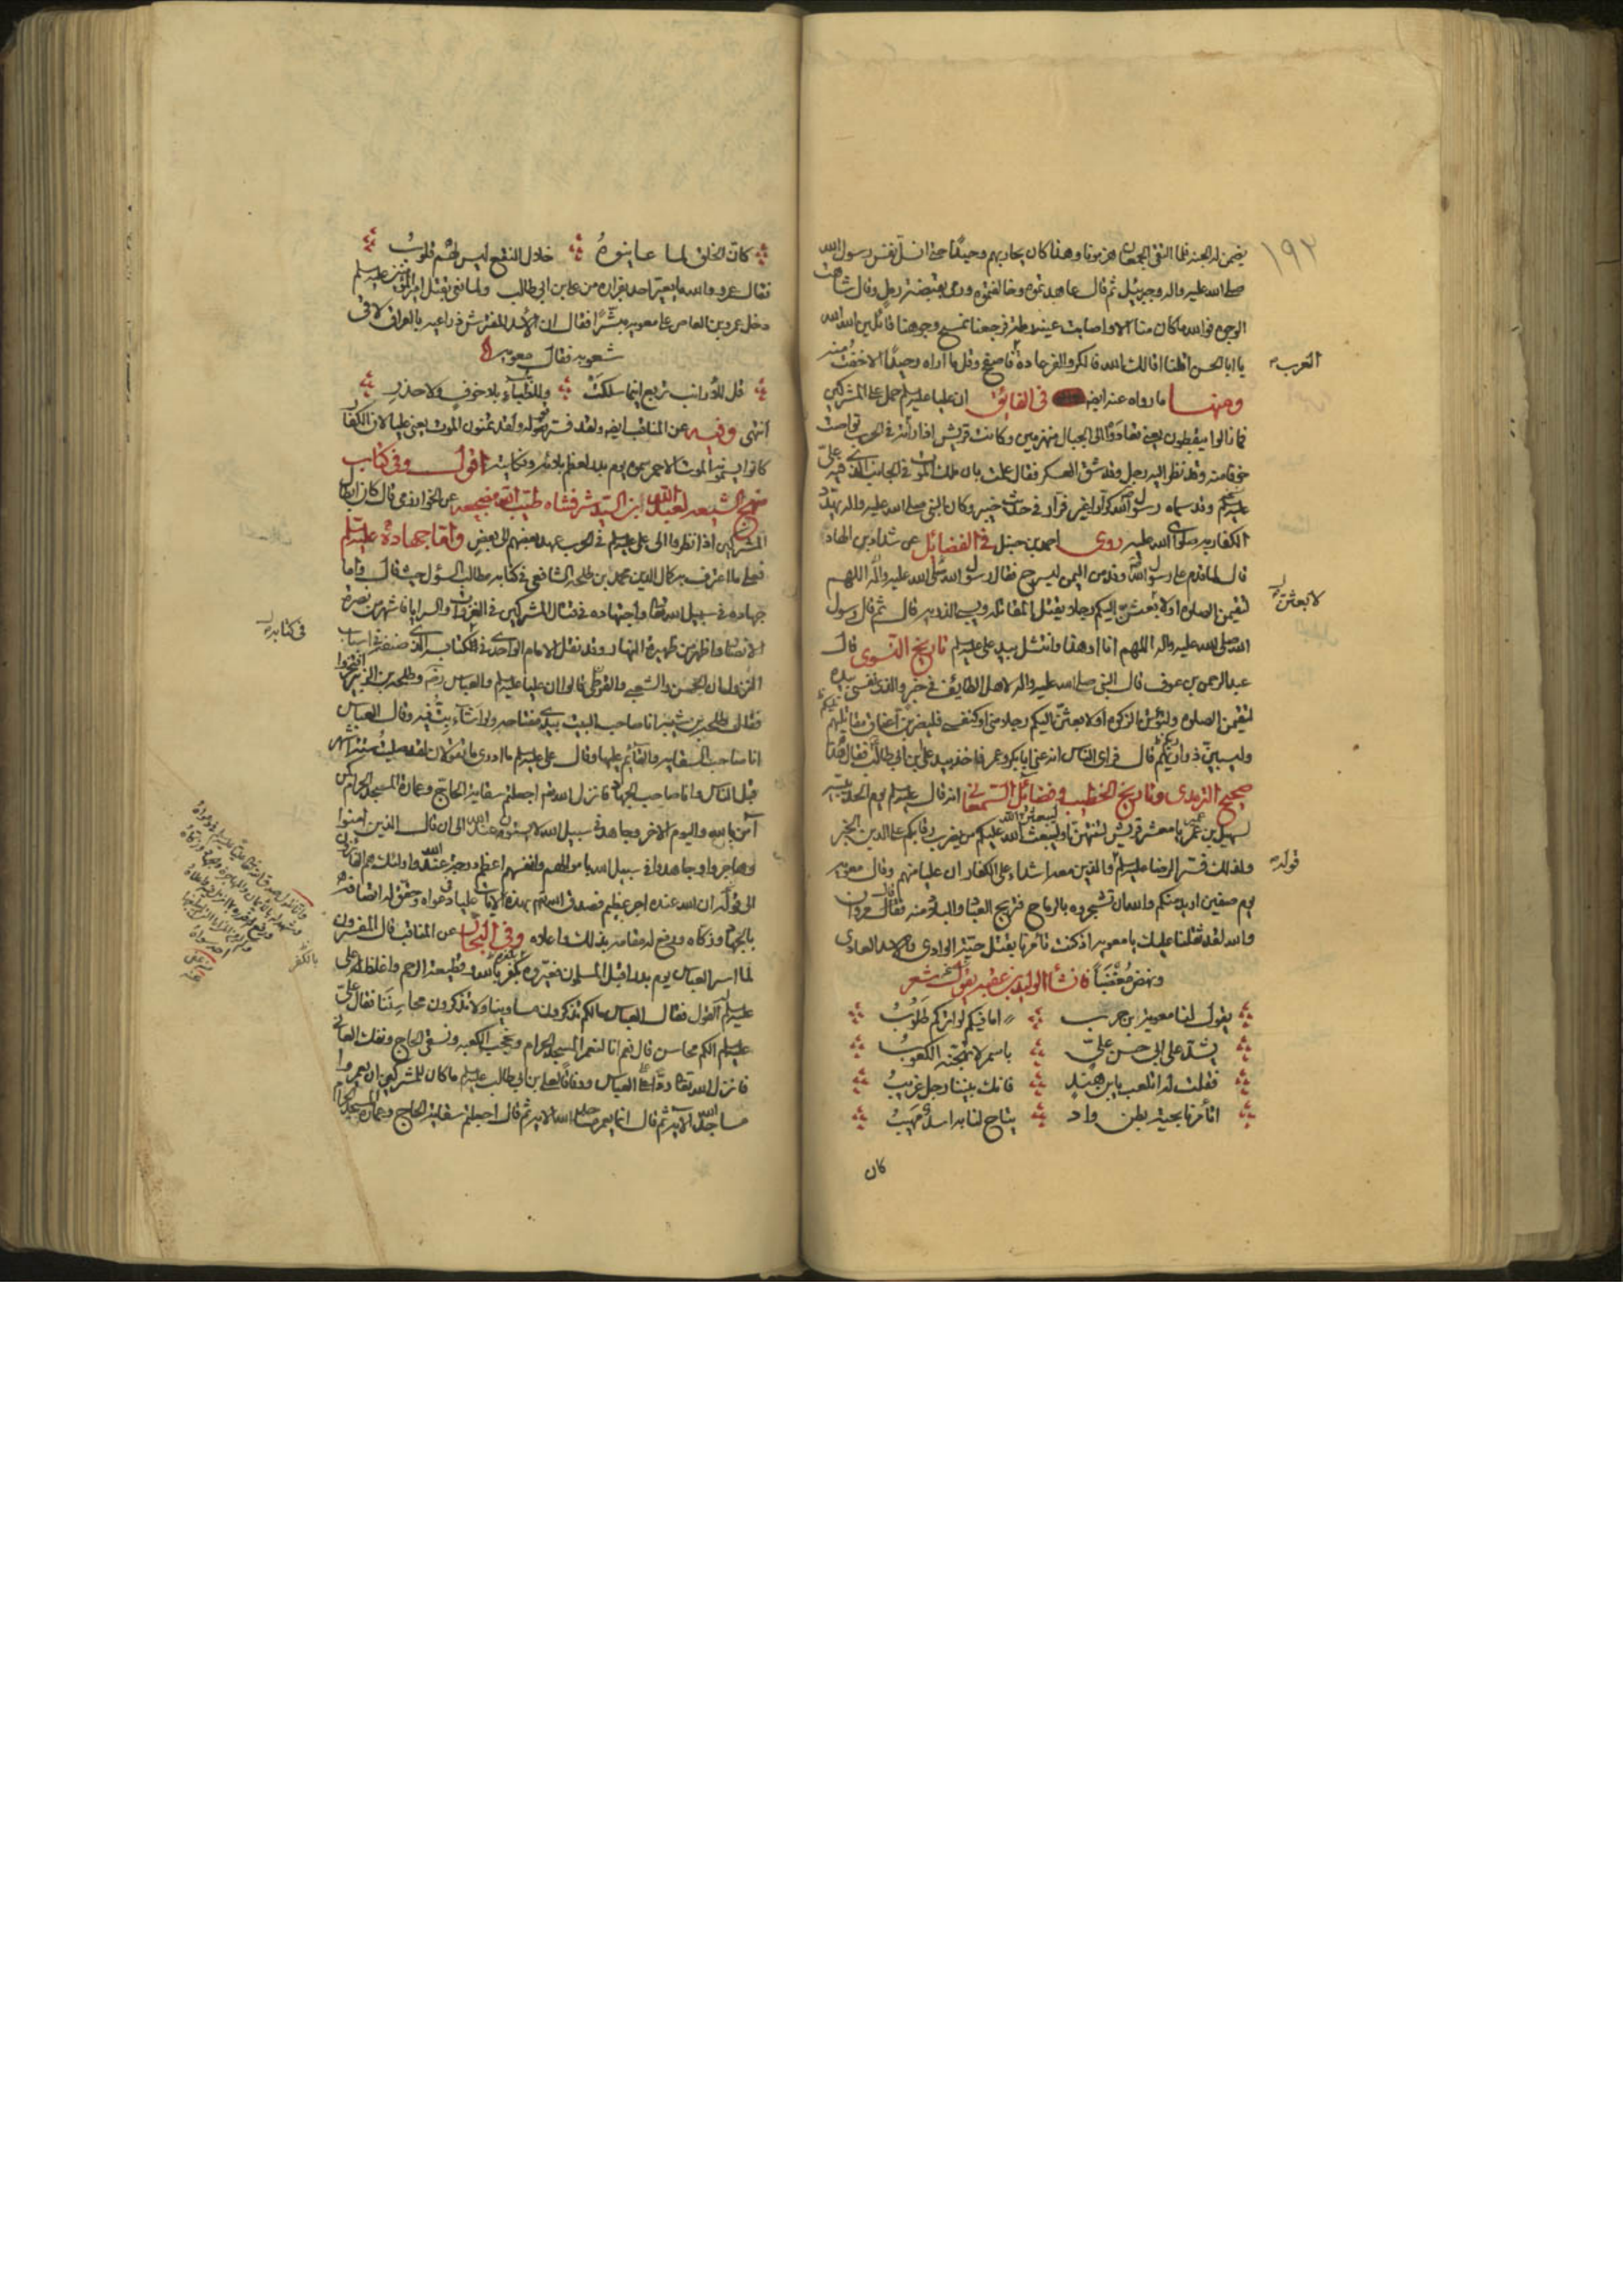 ١٩٢
يضمن له الجنة فلما التقى الجمعان هزمونا وهذا كان يحاربهم وحيدًا حتى انسل نفس رسول الله
صلى الله عليه واله وجبرئيل ثم قال عاهدتموه وخالفتموه ورمى بقبضة رمل وقال شاهت
الوجوه فوالله ما كان منا الا واصابت عينه رملة فرجعنا نمسح وجوهنا قائلين الله الله
يا ابا الحسن اقلنا اقالك الله فالكر والفر عادة العرب فاصفح وقل ما اراه وحيدًا الا خفت منه
ومنها ما رواه عنه ايضا في الفائق ان عليا عليه السلم حمل على المشركين
فما زالوا يبقطون يعني تعادوا الى الجبال منهزمين وكانت قريش اذا رأته في الحرب تواصت
خوفا منه وقد نظر اليه رجل وقد شق العسكر فقال علمت بان ملك الموت في الجانب الذي فيه علي
عليه السلم وقد سماه رسول الله كرارا غير فرار في حديث خيبر وكان النبي صلى الله عليه واله يهدد
الكفار به صلوات الله عليه روى احمد بن حنبل في الفضائل عن شداد بن الهاد
قال لما قدم على رسول الله وفد من اليمن ليسرح فقال رسول الله صلى الله عليه واله اللهم
لتقيمن الصلوة او لابعثن اليكم رجلا يقتل المقاتلة ويسبي الذرية قال ثم قال رسول
الله صلى الله عليه واله اللهم انا او هذا وانتشل بيد علي عليه السلم تاريخ النسوي قال
عبد الرحمن بن عوف قال النبي صلى الله عليه واله لاهل الطايف في خبر والذي نفسي بيده
لتقيمن الصلوة ولتؤتن الزكوة او لابعثن اليكم رجلا مني او كنفسي فليضربن اعناق مقاتليكم
وليسبين ذراريكم قال فراى الناس انه عنى ابا بكر وعمر فاخذ بيد علي بن ابي طالب فقال هذا
صحيح الترمذي وتاريخ الخطيب وفضائل السمعاني انه قال عليه السلم يوم الحديبية
لسهيل بن عمير يا معشر قريش لتنتهن او ليبعثن الله عليكم من يضرب رقابكم على الدين الخبر
ولذلك فسر الرضا عليه السلم قوله والذين معه اشداء على الكفار ان عليا منهم وقال معوية
يوم صفين اريد منكم والله ان تشجروه بالرماح فنريح العباد والبلاد منه فقال مروان
والله لقد ثقلنا عليك يا معوية اذ كنت تأمرنا بقتل حية الوادي والاسد العادي
ونهض مغضبًا فانشأ الوليد بن عقبة يقول شعر
يقول لنا معوية بن حرب ؞ اما فيكم لواتركم طلوبُ
يشد على ابي حسن عليّ ؞ باسمر لا تهجنه الكعوبُ
فقلت له اتلعب يابن هندٍ ؞ فانك بيننا رجل غريبُ
اتأمرنا بحية بطن وادٍ ؞ يتاح لنا به اسد مهيبُ
كان
العرب
لابعثن
قوله
كان الخلق لما عاينوهُ ؞ خلال النقع ليس لهم قلوبُ
فقال عمرو والله ما يعير احد بفراره من علي بن ابي طالب ولما نعي بقتل امير المؤمنين عليه السلم
دخل عمرو بن العاص على معوية مبشّرًا فقال ان الاسد المفترش ذراعيه بالعراق لاقى
شعوبه فقال معوية
قل للأرانب تربع اينما سلكت ؞ وللظباء بلا خوفٍ ولا حذرِ
انتهى وفيه عن المناقب ايضا ولقد فسر قوله ولقد كنتم تمنون الموت يعني عليا لان الكفار
كانوا يسمونه الموت الاحمر سموه يوم بدر لعظم بلائه ونكايته اقول وفي كتاب
منهج الشيعة لعبد الله ابن السيد شرفشاه طيب الله مضجعه عن الخوارزمي قال كان ابطال
المشركين اذا نظروا الى علي عليه السلم في الحرب عهد بعضهم الى بعض واما جهاده عليه السلم
فعلى ما اعترف به كمال الدين محمد بن طلحة الشافعي في كتابه مطالب السؤل حيث قال واما
جهاده في سبيل الله تعالى واجتهاده في قتال المشركين في الغزوات والسرايا فاشهر من بصرة
الانصار واظهر من ظهيرة النهار وقد نقل الامام الواحدي في كتابه الذي صنفه في اسباب
النزول ان الحسن والشعبي والقرظي قالوا ان عليا عليه السلم والعباس رضه وطلحة بن الزبير افتخروا
فقال طلحة بن شيبة انا صاحب البيت بيدي مفتاحه ولو اشاء بت فيه وقال العباس
انا صاحب السقاية والقائم عليها وقال علي عليه السلم ما ادري ما تقولان لقد صليت ستة اشهر
قبل الناس وانا صاحب الجهاد فانزل الله تعالى اجعلتم سقاية الحاج وعمارة المسجد الحرام كمن
آمن بالله واليوم الاخر وجاهد في سبيل الله لا يستوون عند الله الى ان قال الذين امنوا
وهاجروا وجاهدوا في سبيل الله باموالهم وانفسهم اعظم درجة عند الله واولئك هم الفائزون
الى قوله ان الله عنده اجر عظيم فصدق الله تعالى بهذه الايات عليا في دعواه وحقق له اتصافه
بالجهاد وزكاه ورفع له مقامه بذلك واعلاه وفي البحار عن المناقب قال المفسرون
لما اسر العباس يوم بدر اقبل المسلمون فعيروه بكفره بالله وقطيعة الرحم واغلظ له علي
عليه السلم القول فقال العباس ما لكم تذكرون مساوينا ولا تذكرون محاسننا فقال علي
عليه السلم الكم محاسن قال نعم انا لنعمر المسجد الحرام ونحجب الكعبة ونسقي الحاج ونفك العاني
فانزل الله تعالى ردًا على العباس ووفاقًا لعلي بن ابي طالب عليه السلم ما كان للمشركين ان يعمروا
مساجد الله الاية ثم قال انما يعمر مساجد الله الاية ثم قال اجعلتم سقاية الحاج وعمارة المسجد الحرام
في كتابه
بالكفر